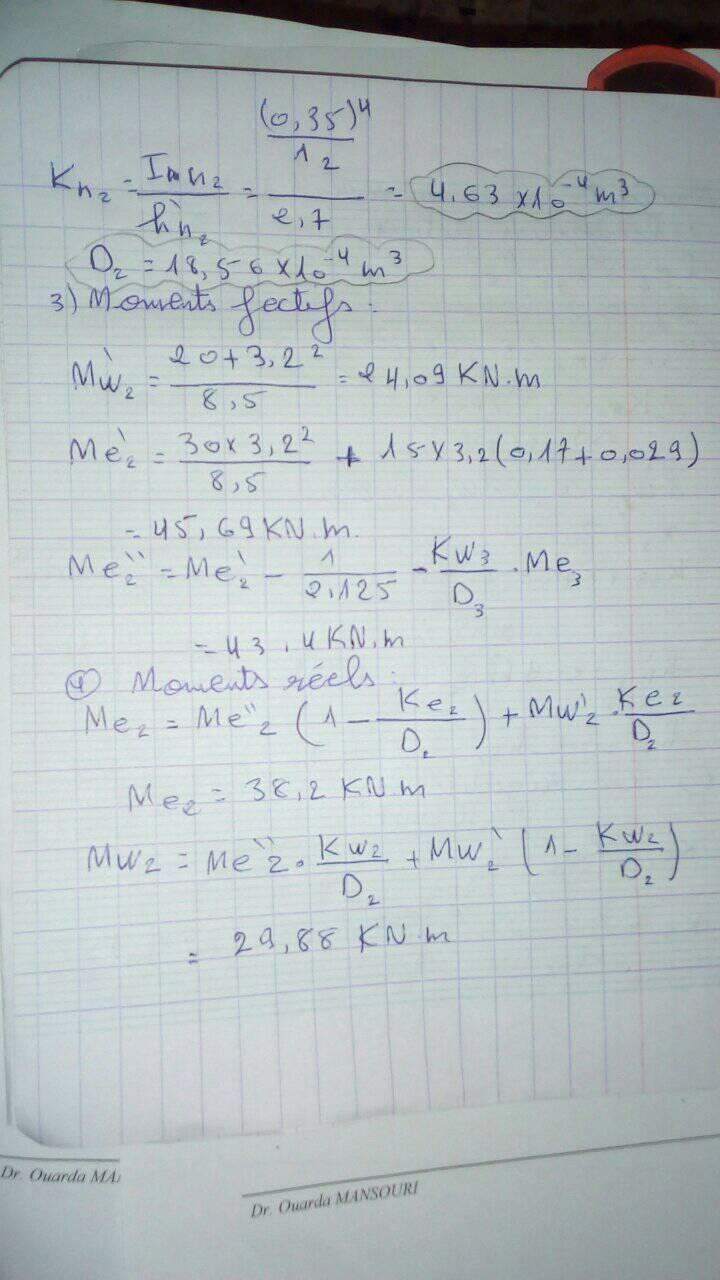 K_{n_2} = \frac{I_{n_2}}{h'_{n_2}} = \frac{\frac{(0,35)^4}{12}}{2,7} = 4.63 × 10^{-4} m^3
D_2 = 18,56 × 10^{-4} m^3
3) Moments fectifs :
M'w_2 = \frac{20 + 3,2^2}{8,5} = 24,09 KN.m
Me'_2 = \frac{30 × 3,2^2}{8,5} + 15 × 3,2 (0,17 + 0,029)
= 45,69 KN.m.
Me''_2 = Me'_2 - \frac{1}{2.125} - \frac{Kw_3}{D_3} . Me_3
= 43,4 KN.m
④ Moments réels :
Me_2 = Me''_2 (1 - \frac{Ke_2}{D_2}) + Mw'_2 . \frac{Ke_2}{D_2}
Me_2 = 38,2 KN.m
Mw_2 = Me''_2 . \frac{Kw_2}{D_2} + Mw'_2 (1 - \frac{Kw_2}{D_2})
= 29,88 KN.m
Dr. Ouarda MA
Dr. Ouarda MANSOURI